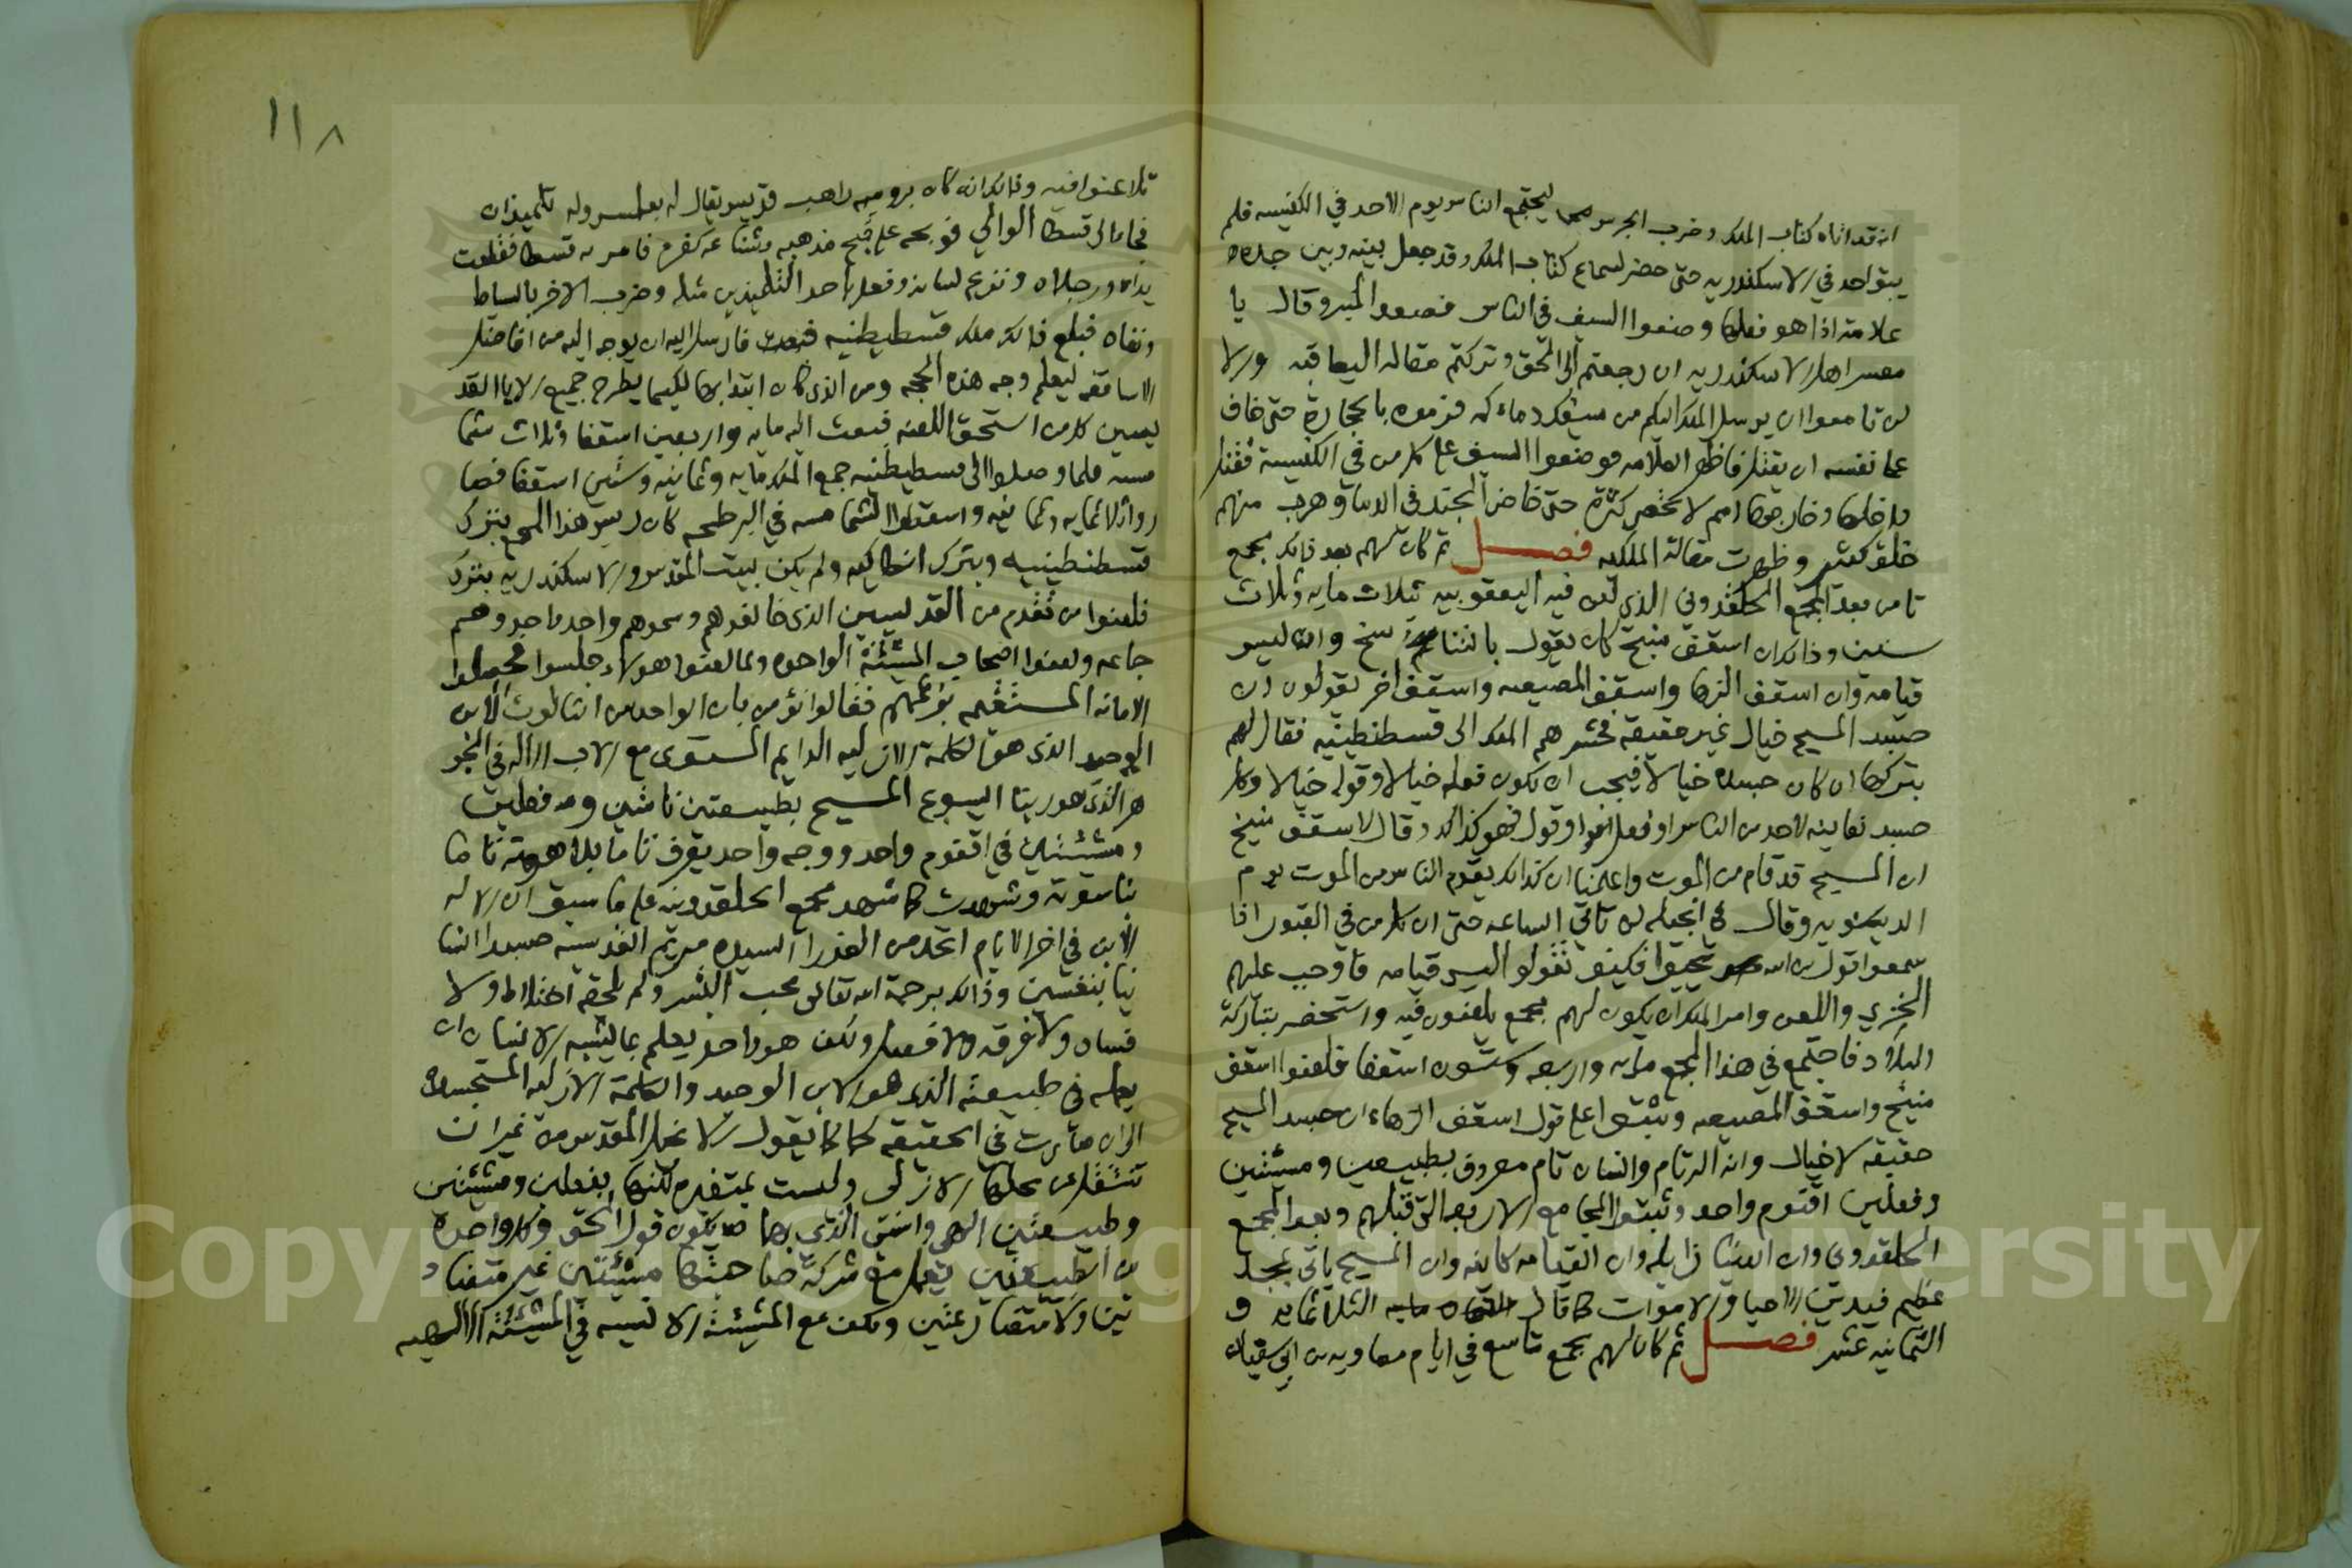 انه قد اتاه كتاب الملك وضرب الجرس ليجتمع الناس يوم الاحد في الكنيسه فلم
يبق احد في الاسكندريه حتى حضر لسماع كتاب الملك وقد جعل بينه وبين جنده
علامة اذا هو فعلها وضعوا السيف في الناس فصعد المنبر وقال يا
معسر اهل الاسكندريه ان رجعتم الى الحق وتركتم مقاله اليعاقبه والا
لن تامنوا ان يرسل الملك اليكم من يسفك دماءكم فرموه بالحجارة حتى خاف
على نفسه ان يقتل فاظهر العلامه فوضعوا السيف على كل من في الكنيسة فقتل
داخلها وخارجها امم لا تحصى كثرة حتى خاض الجند في الدماء وهرب منهم
خلق كثير وظهرت مقالة الملكيه فصل ثم كان لهم بعد ذلك مجمع
ثامن بعد المجمع الخلقدوني الذي لعن فيه اليعقوبيه بثلاث مايه وثلاث
سنين وذلك ان اسقف منبج كان يقول بالتناسخ وان ليس
قيامة وان اسقف الرها واسقف المصيصه واسقف اخر يقولون ان
جسد المسيح خيال غير حقيقة فحشرهم الملك الى قسطنطينيه فقال لهم
بتركها ان كان جسده خيالا فيجب ان يكون فعله خيالا وقوله خيالا وكل
جسد نعاينه لاحد من الناس او فعل او قول فهو كذلك وقال لاسقف منبج
ان المسيح قد قام من الموت واعلمنا ان كذلك يقوم الناس من الموت يوم
الدينونه وقال في انجيله لن تاتي الساعه حتى ان كل من في القبور اذا
سمعوا قول ابن الله يحيوا فكيف تقولوا ليس قيامه فاوجب عليهم
الخزي واللعن وامر الملك ان يكون لهم مجمع يلعنون فيه واستحضر بتاركة
البلاد فاجتمع في هذا المجمع مايه واربعه وستون اسقفا فلعنوا اسقف
منبج واسقف المصيصه وثبتوا على قول اسقف الرهاء ان جسد المسيح
حقيقه لا خيال وانه اله تام وانسان تام معروف بطبيعتين ومشيئتين
وفعلين اقنوم واحد وثبتوا المجامع الاربعه التي قبلهم وبعد المجمع
الخلقدوني وان الدنيا زايله وان القيامه كاينه وان المسيح ياتي بمجد
عظيم فيدين الاحياء والاموات كما قال الثلاثمايه و
الثمانيه عشر فصل ثم كان لهم مجمع تاسع في ايام معاويه بن ابي سفيان
١١٨
تلاعنوا فيه وذلك انه كان برومية راهب قديس يقال له وله تلميذان
فجاء الى قسطا الوالي فوبخه على قبح مذهبه وشناعه كفره فامر به قسطا فقطعت
يداه ورجلاه ونزع لسانه وفعل باحد التلميذين مثله وضرب الاخر بالسياط
ونفاه فبلغ ذلك ملك قسطنطنيه فارسل اليه ان يوجه اليه من افاضل
الاساقفه ليعلم وجه هذه الحجه ومن الذي كان ابتداها لكيما يطرح جميع الابا القد
يسين كل من استحق اللعنه فبعث اليه مايه واربعين اسقفا وثلاث شما
مسه فلما وصلوا الى قسطنطنيه جمع الملك مايه وثمانيه وستين اسقفا فصا
روا ثلاثمايه وثمانيه واسقطوا الشمامسه في البرطحه كان رييس هذا المجمع بترك
قسطنطينيه وبترك انطاكيه ولم يكن لبيت المقدس والاسكندريه بترك
فلعنوا من تقدم من القديسين الذي خالفوهم وسموهم واحد واحد وهم
جماعه ولعنوا اصحاب المشيئة الواحده ولما لعنوا هولاء جلسوا
الامانه المستقيمه بزعمهم فقالوا نؤمن بان الواحد من الثالوث الابن
الوحيد الذي هو الكلمة الازليه الدايم المستوى مع الاب الاله في الجو
هر الذي هو ربنا اليسوع المسيح بطبيعتين تامتين وفعلين
ومشيئتين في اقنوم واحد ووجه واحد يعرف تاما بلاهوته تاما
بناسوته وشهدت كما شهد مجمع الخلقدونيه على ما سبق ان الاله
الابن في اخر الايام اتخذ من العذرا السيده مريم القديسه جسدا انسا
نيا بنفسين وذلك برحمة الله تعالى محب البشر ولم يلحقه اختلاط ولا
فساد ولا فرقه ولا فصل ولكن هو واحد يعمل بما يشبه الانسان ان
يعمله في طبيعته الذي هو الابن الوحيد والكلمة الازليه المتجسده
الى ان صارت في الحقيقه كما يقول الانجيل المقدس من غير ان
تنتقل من محلها الازلي وليست بمتغيره لكنها بفعلين ومشيئتين
وطبيعتين الهي وانسي الذي بها يكون قول الحق وكل واحده
من الطبيعتين تعمل مع شركة صاحبتها مشيئتين غير متضاد
تين ولا متصارعتين ولكن مع المشيئة الانسيه في المشيئة الالهيه